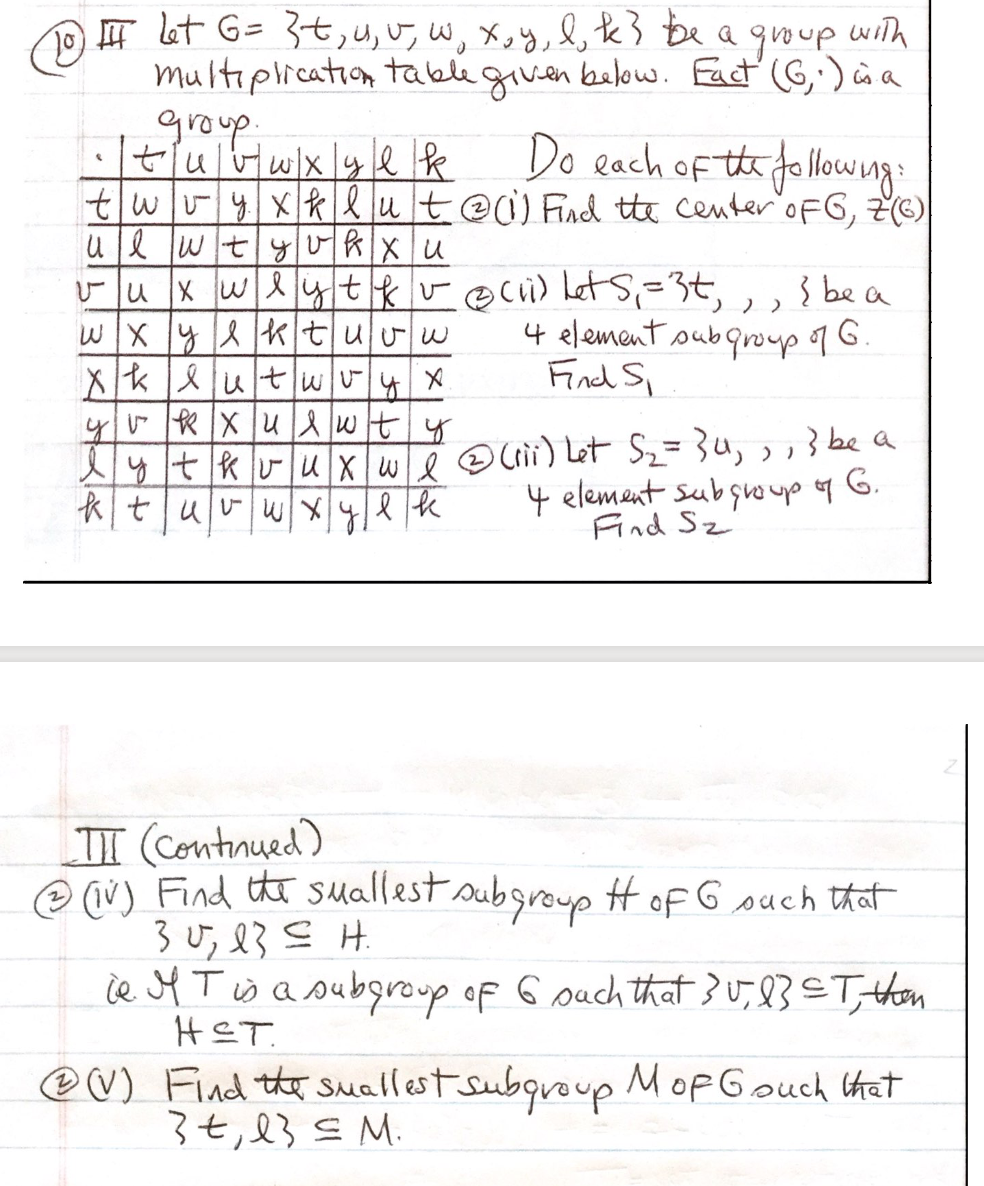 10 III Let G= {t, u, v, w, x, y, l, k} be a group with
multiplication table given below. Fact (G,·) is a
group.
· | t | u | v | w | x | y | l | k
t | w | v | y | x | k | l | u | t
u | l | w | t | y | v | k | x | u
v | u | x | w | l | y | t | k | v
w | x | y | l | k | t | u | v | w
x | k | l | u | t | w | v | y | x
y | v | k | x | u | l | w | t | y
l | y | t | k | v | u | x | w | l
k | t | u | v | w | x | y | l | k
Do each of the following:
2 (i) Find the center of G, Z(G)
2 (ii) Let S₁={t, , , } be a
4 element subgroup of G.
Find S₁
2 (iii) Let S₂= {u, , , } be a
4 element subgroup of G.
Find S₂
2
III (Continued)
2 (iv) Find the smallest subgroup H of G such that
{v, l} ⊆ H.
ie If T is a subgroup of G such that {v, l} ⊆ T, then
H ⊆ T.
2 (v) Find the smallest subgroup M of G such that
{t, l} ⊆ M.